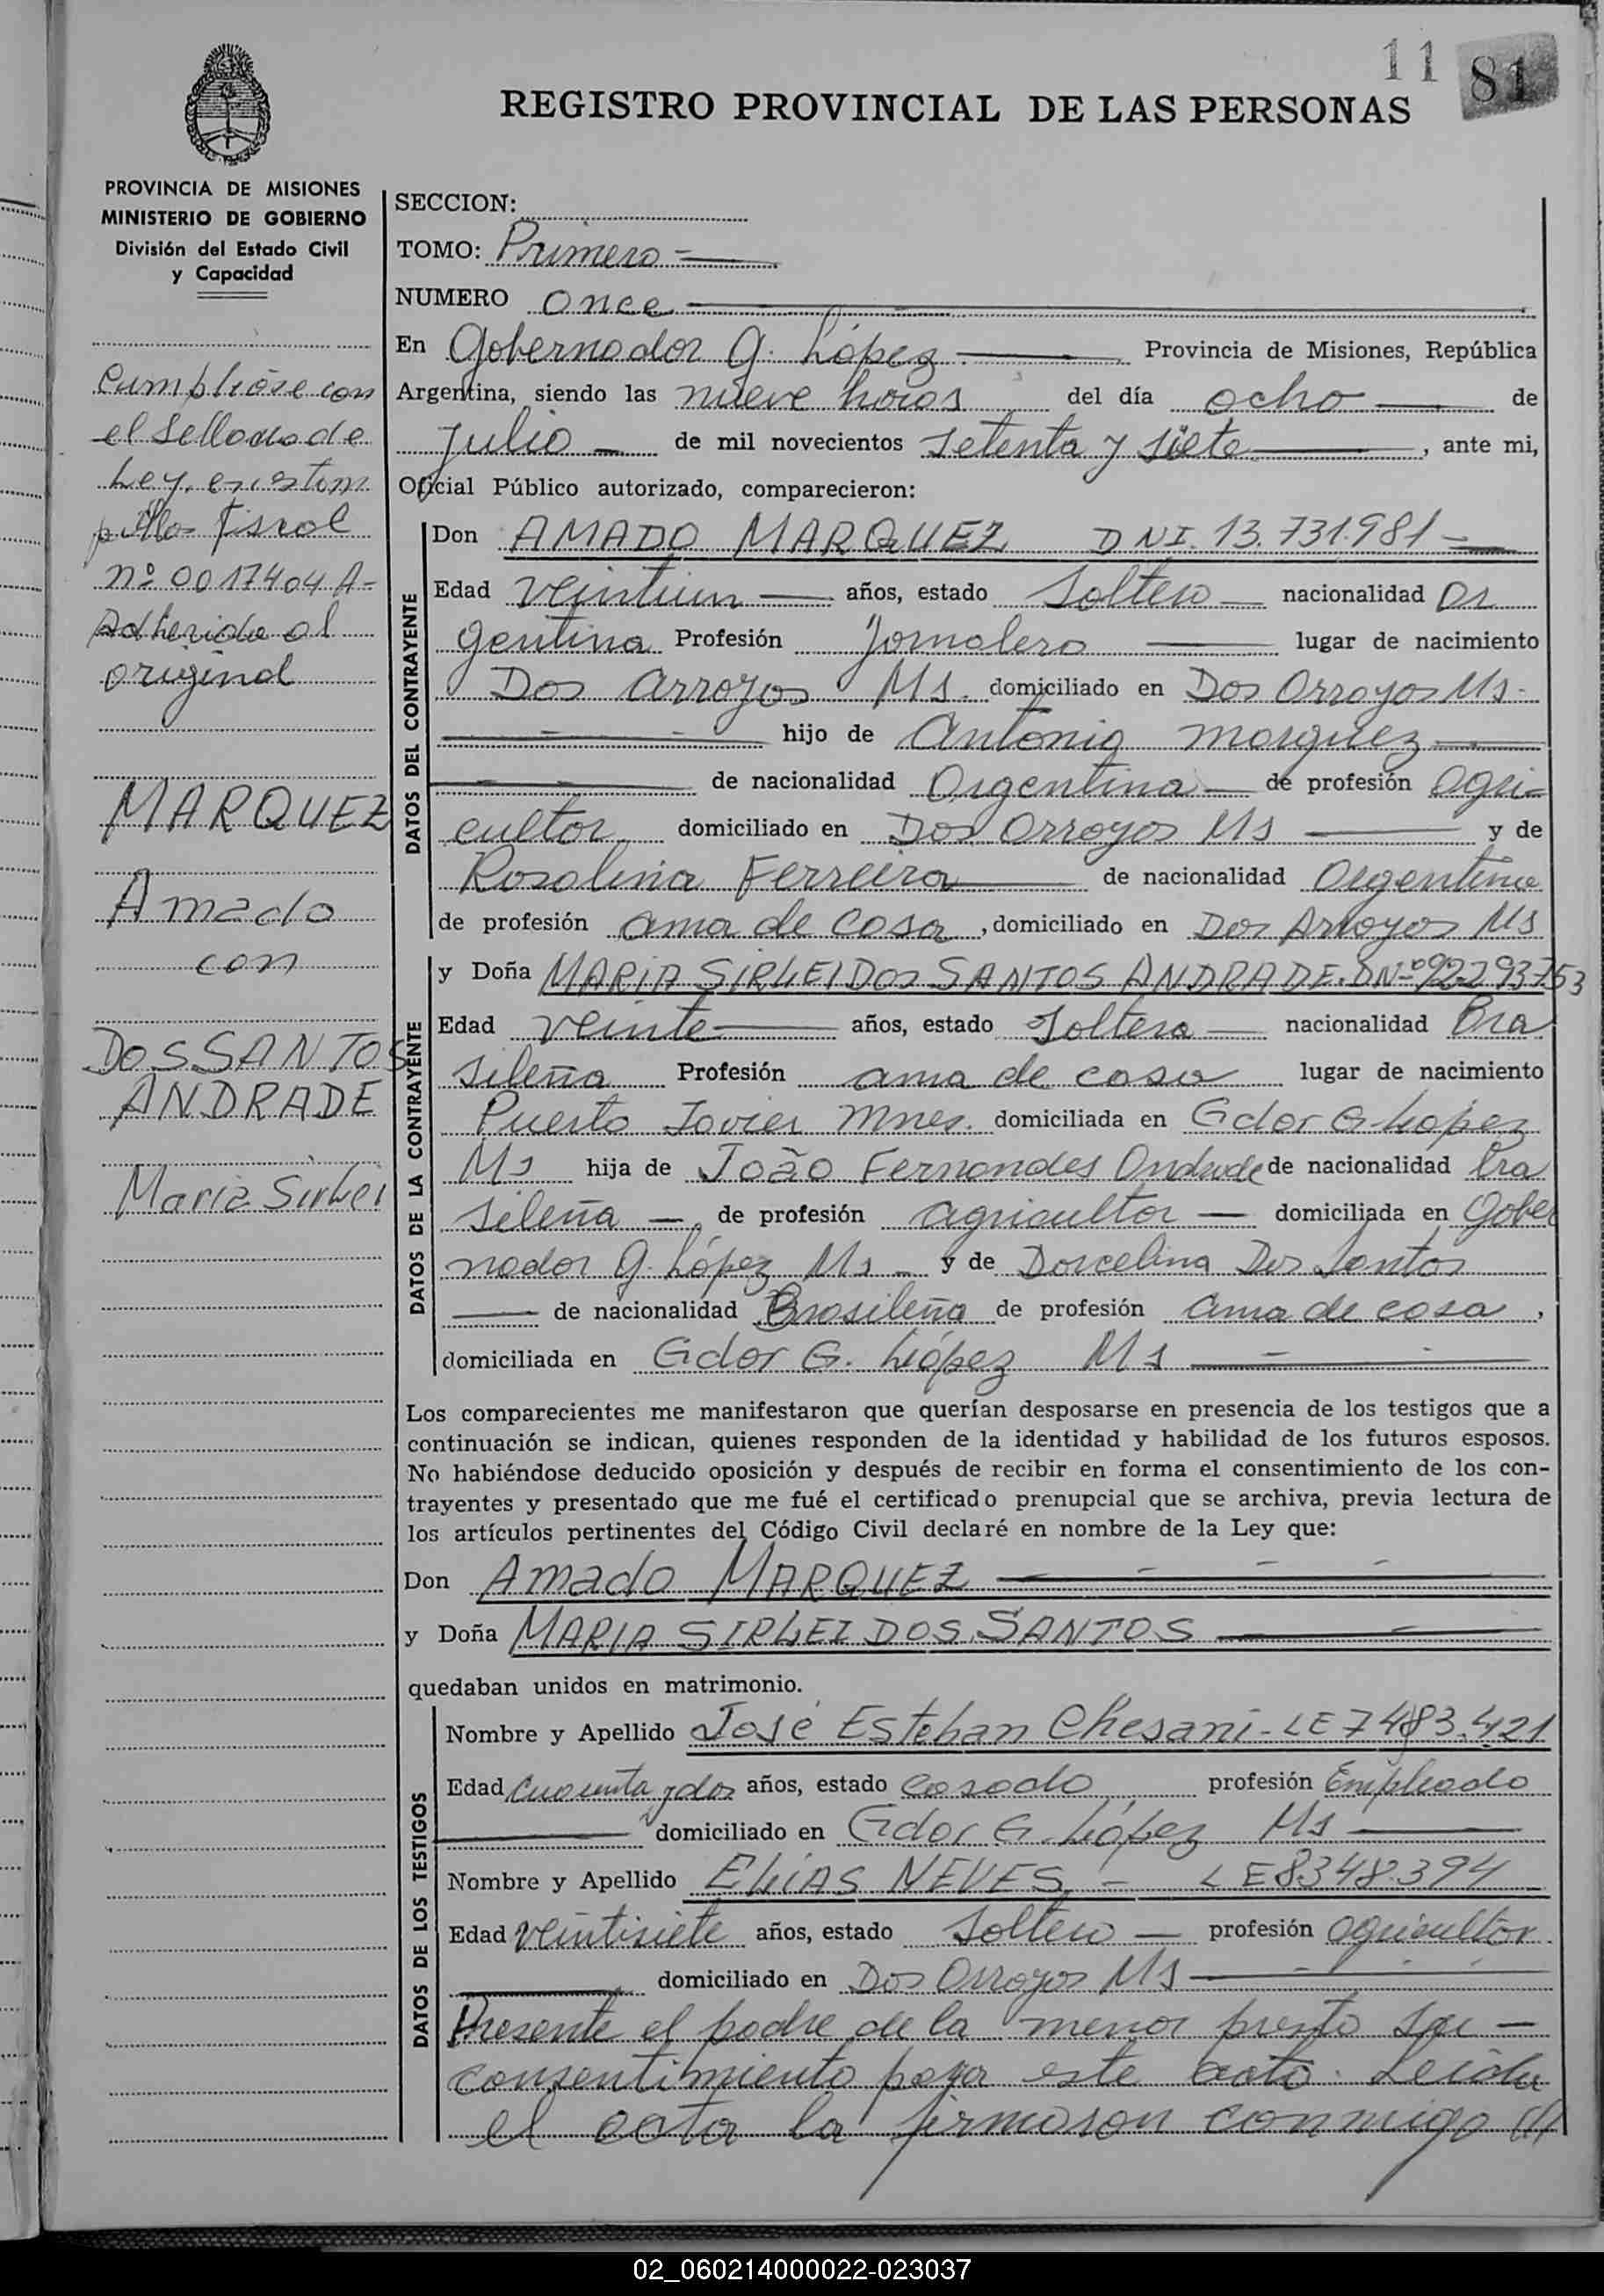 11 81
REGISTRO PROVINCIAL DE LAS PERSONAS
PROVINCIA DE MISIONES
MINISTERIO DE GOBIERNO
División del Estado Civil
y Capacidad
Cumplióse con
el Sellado de
Ley, en estam
pilla fiscal
nº 0017404 A-
Adherida al
original
MARQUEZ
Amado
con
DOS SANTOS
ANDRADE
Maria Sirlei
SECCION:
TOMO: Primero
NUMERO once
En Gobernador G. López Provincia de Misiones, República
Argentina, siendo las nueve horas del día ocho de
Julio de mil novecientos setenta y siete, ante mi,
Oficial Público autorizado, comparecieron:
DATOS DEL CONTRAYENTE
Don AMADO MARQUEZ DNI. 13.731.981
Edad veintiun años, estado soltero nacionalidad ar
gentina Profesión Jornalero lugar de nacimiento
Dos Arroyos Ms. domiciliado en Dos Arroyos Ms.
hijo de Antonio Marquez
de nacionalidad Argentina de profesión agri-
cultor domiciliado en Dos Arroyos Ms y de
Rosalina Ferreira de nacionalidad Argentina
de profesión ama de casa, domiciliado en Dos Arroyos Ms
DATOS DE LA CONTRAYENTE
y Doña MARIA SIRLEI DOS SANTOS ANDRADE. DNº 92.293.753
Edad veinte años, estado soltera nacionalidad Bra
sileña Profesión ama de casa lugar de nacimiento
Puerto Javier Mnes. domiciliada en Gdor G. López
Ms hija de João Fernandes Andrade de nacionalidad bra
sileña, de profesión agricultor domiciliada en Gober
nador G. López Ms y de Dorcelina Dos Santos
de nacionalidad Brasileña de profesión ama de casa,
domiciliada en Gdor G. López Ms
Los comparecientes me manifestaron que querían desposarse en presencia de los testigos que a
continuación se indican, quienes responden de la identidad y habilidad de los futuros esposos.
No habiéndose deducido oposición y después de recibir en forma el consentimiento de los con-
trayentes y presentado que me fué el certificado prenupcial que se archiva, previa lectura de
los artículos pertinentes del Código Civil declaré en nombre de la Ley que:
Don Amado MARQUEZ
y Doña MARIA SIRLEI DOS SANTOS
quedaban unidos en matrimonio.
DATOS DE LOS TESTIGOS
Nombre y Apellido José Esteban Chesani - LE 7483.421
Edad cuarenta y dos años, estado casado profesión Empleado
domiciliado en Gdor G. López Ms
Nombre y Apellido ELIAS NEVES - LE 8348.394
Edad veintisiete años, estado soltero profesión agricultor
domiciliado en Dos Arroyos Ms
Presente el padre de la menor presto su
consentimiento para este acto. Leida
el acta la firmaron conmigo ///
02_060214000022-023037